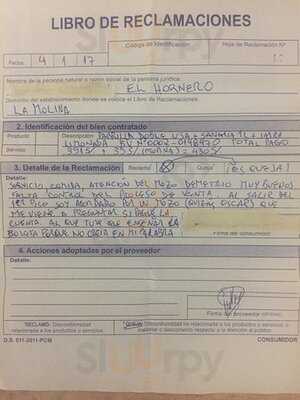 LIBRO DE RECLAMACIONES
Código de Identificación: Hoja de Reclamación N°
Fecha: 9 1 17
Nombre de la persona natural o razón social de la persona jurídica:
EL HORNERO
Domicilio del establecimiento donde se coloca el Libro de Reclamaciones:
LA MOLINA
2. Identificación del bien contratado
Producto Descripción: PARRILLA DOBLE USA + SANGRIA 1L + JARRA
Servicio LIMONADA BV N° TOTAL PAGO
395 S/ + 35 S/ (PROPINA) = 430 S/
3. Detalle de la Reclamación Reclamo Queja (ES QUEJA)
Detalle:
SERVICIO, COMIDA, ATENCION DEL MOZO DEMETRIO MUY BUENOS
FALTA CONTROL DEL PROCESO DE VENTA AL SALIR DEL
1ER PISO SOY ABORDADO POR UN MOZO OSCAR) QUE
ME VIENE A PREGUNTAR SI PAGUE LA
CUENTA AL QUE TUVE QUE ENSEÑAR LA
BOLETA PORQUE NO CREIA EN MI PALABRA
Firma del consumidor
4. Acciones adoptadas por el proveedor
Detalle:
Firma del proveedor
RECLAMO: Disconformidad relacionada a los productos o servicios.
QUEJA: Disconformidad no relacionada a los productos o servicios; o malestar o descontento respecto a la atención al público.
D.S. 011-2011-PCM CONSUMIDOR
Sluurpy
Sluurpy